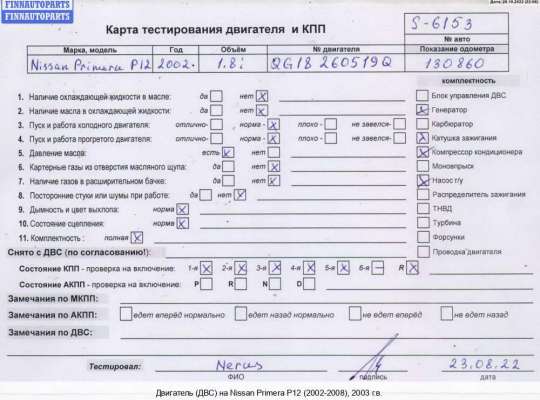 FINNAUTOPARTS
FINNAUTOPARTS
Карта тестирования двигателя и КПП
S-6153
№ авто
Марка, модель Год Объём № двигателя Показание одометра
Nissan Primera P12 2002. 1.8i QG18 260519Q 130860
комплектность
1. Наличие охлаждающей жидкости в масле: да нет x Блок управления ДВС
2. Наличие масла в охлаждающей жидкости: да нет x Генератор
3. Пуск и работа холодного двигателя: отлично- норма - x плохо - не завелся- Карбюратор
4. Пуск и работа прогретого двигателя: отлично- норма - x плохо - не завелся- Катушка зажигания
5. Давление масла: есть x нет Компрессор кондиционера
6. Картерные газы из отверстия масляного щупа: да нет x Моновпрыск
7. Наличие газов в расширительном бачке: да нет x Насос г/у
8. Посторонние стуки или шумы при работе: да нет x Распределитель зажигания
9. Дымность и цвет выхлопа: норма x ТНВД
10. Состояние сцепления: норма x Турбина
11. Комплектность : полная x Форсунки
Снято с ДВС (по согласованию!): Проводка двигателя
Состояние КПП - проверка на включение: 1-я x 2-я x 3-я x 4-я x 5-я x 6-я – R x
Состояние АКПП - проверка на включение: P R N D
Замечания по МКПП:
Замечания по АКПП: едет вперёд нормально едет назад нормально не едет вперёд не едет назад
Замечания по ДВС:
Тестировал: Nerus 23.08.22
ФИО подпись дата
Двигатель (ДВС) на Nissan Primera P12 (2002-2008), 2003 г.в.